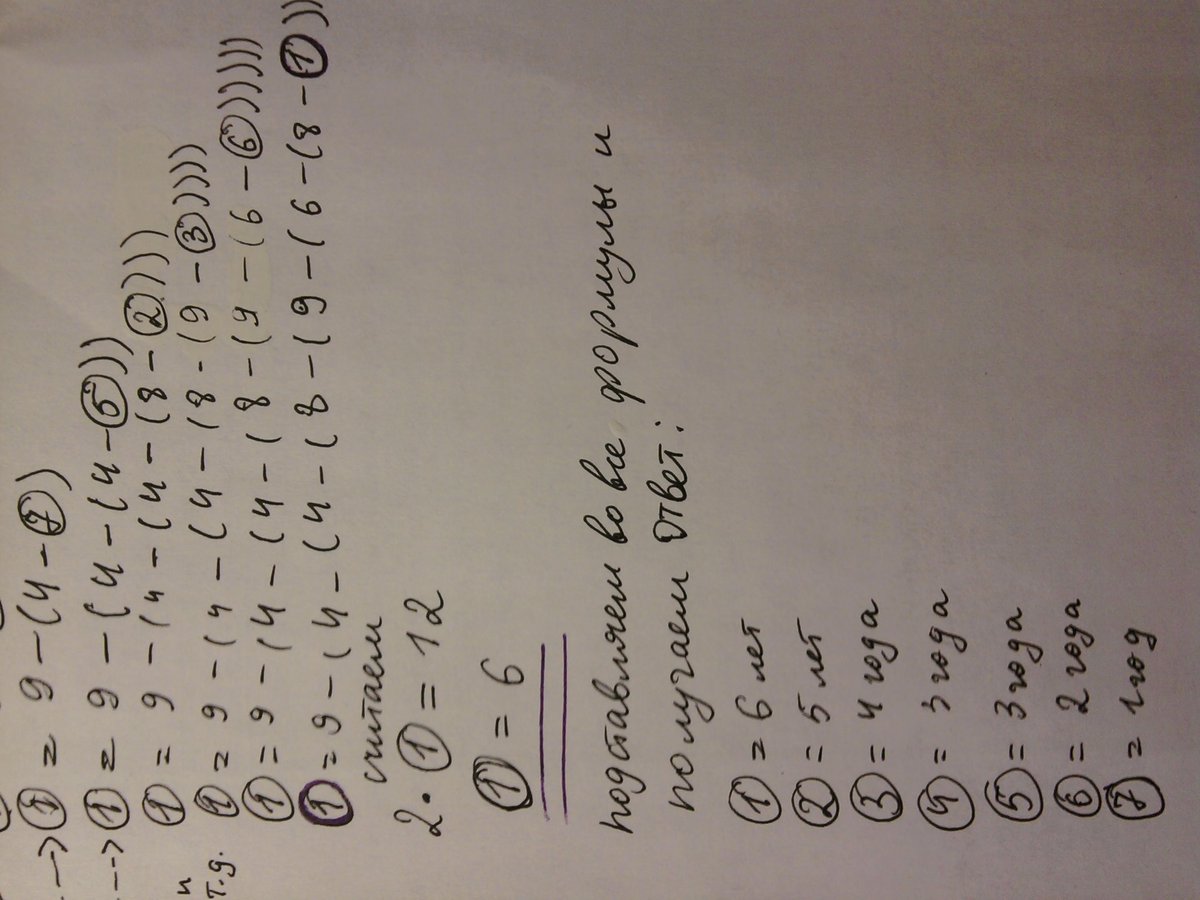 --> ① = 9 - (4 - ⑦)
--> ① = 9 - (4 - (4 - ⑤)))
и т.д. ① = 9 - (4 - (4 - (8 - ②))))
① = 9 - (4 - (4 - (8 - (9 - ③)))))
① = 9 - (4 - (4 - (8 - (9 - (6 - ⑥))))))
① = 9 - (4 - (4 - (8 - (9 - (6 - (8 - ①))
считаем
2 · ① = 12
① = 6
подставляем во все формулы и
получаем ответ:
① = 6 лет
② = 5 лет
③ = 4 года
④ = 3 года
⑤ = 3 года
⑥ = 2 года
⑦ = 1 год